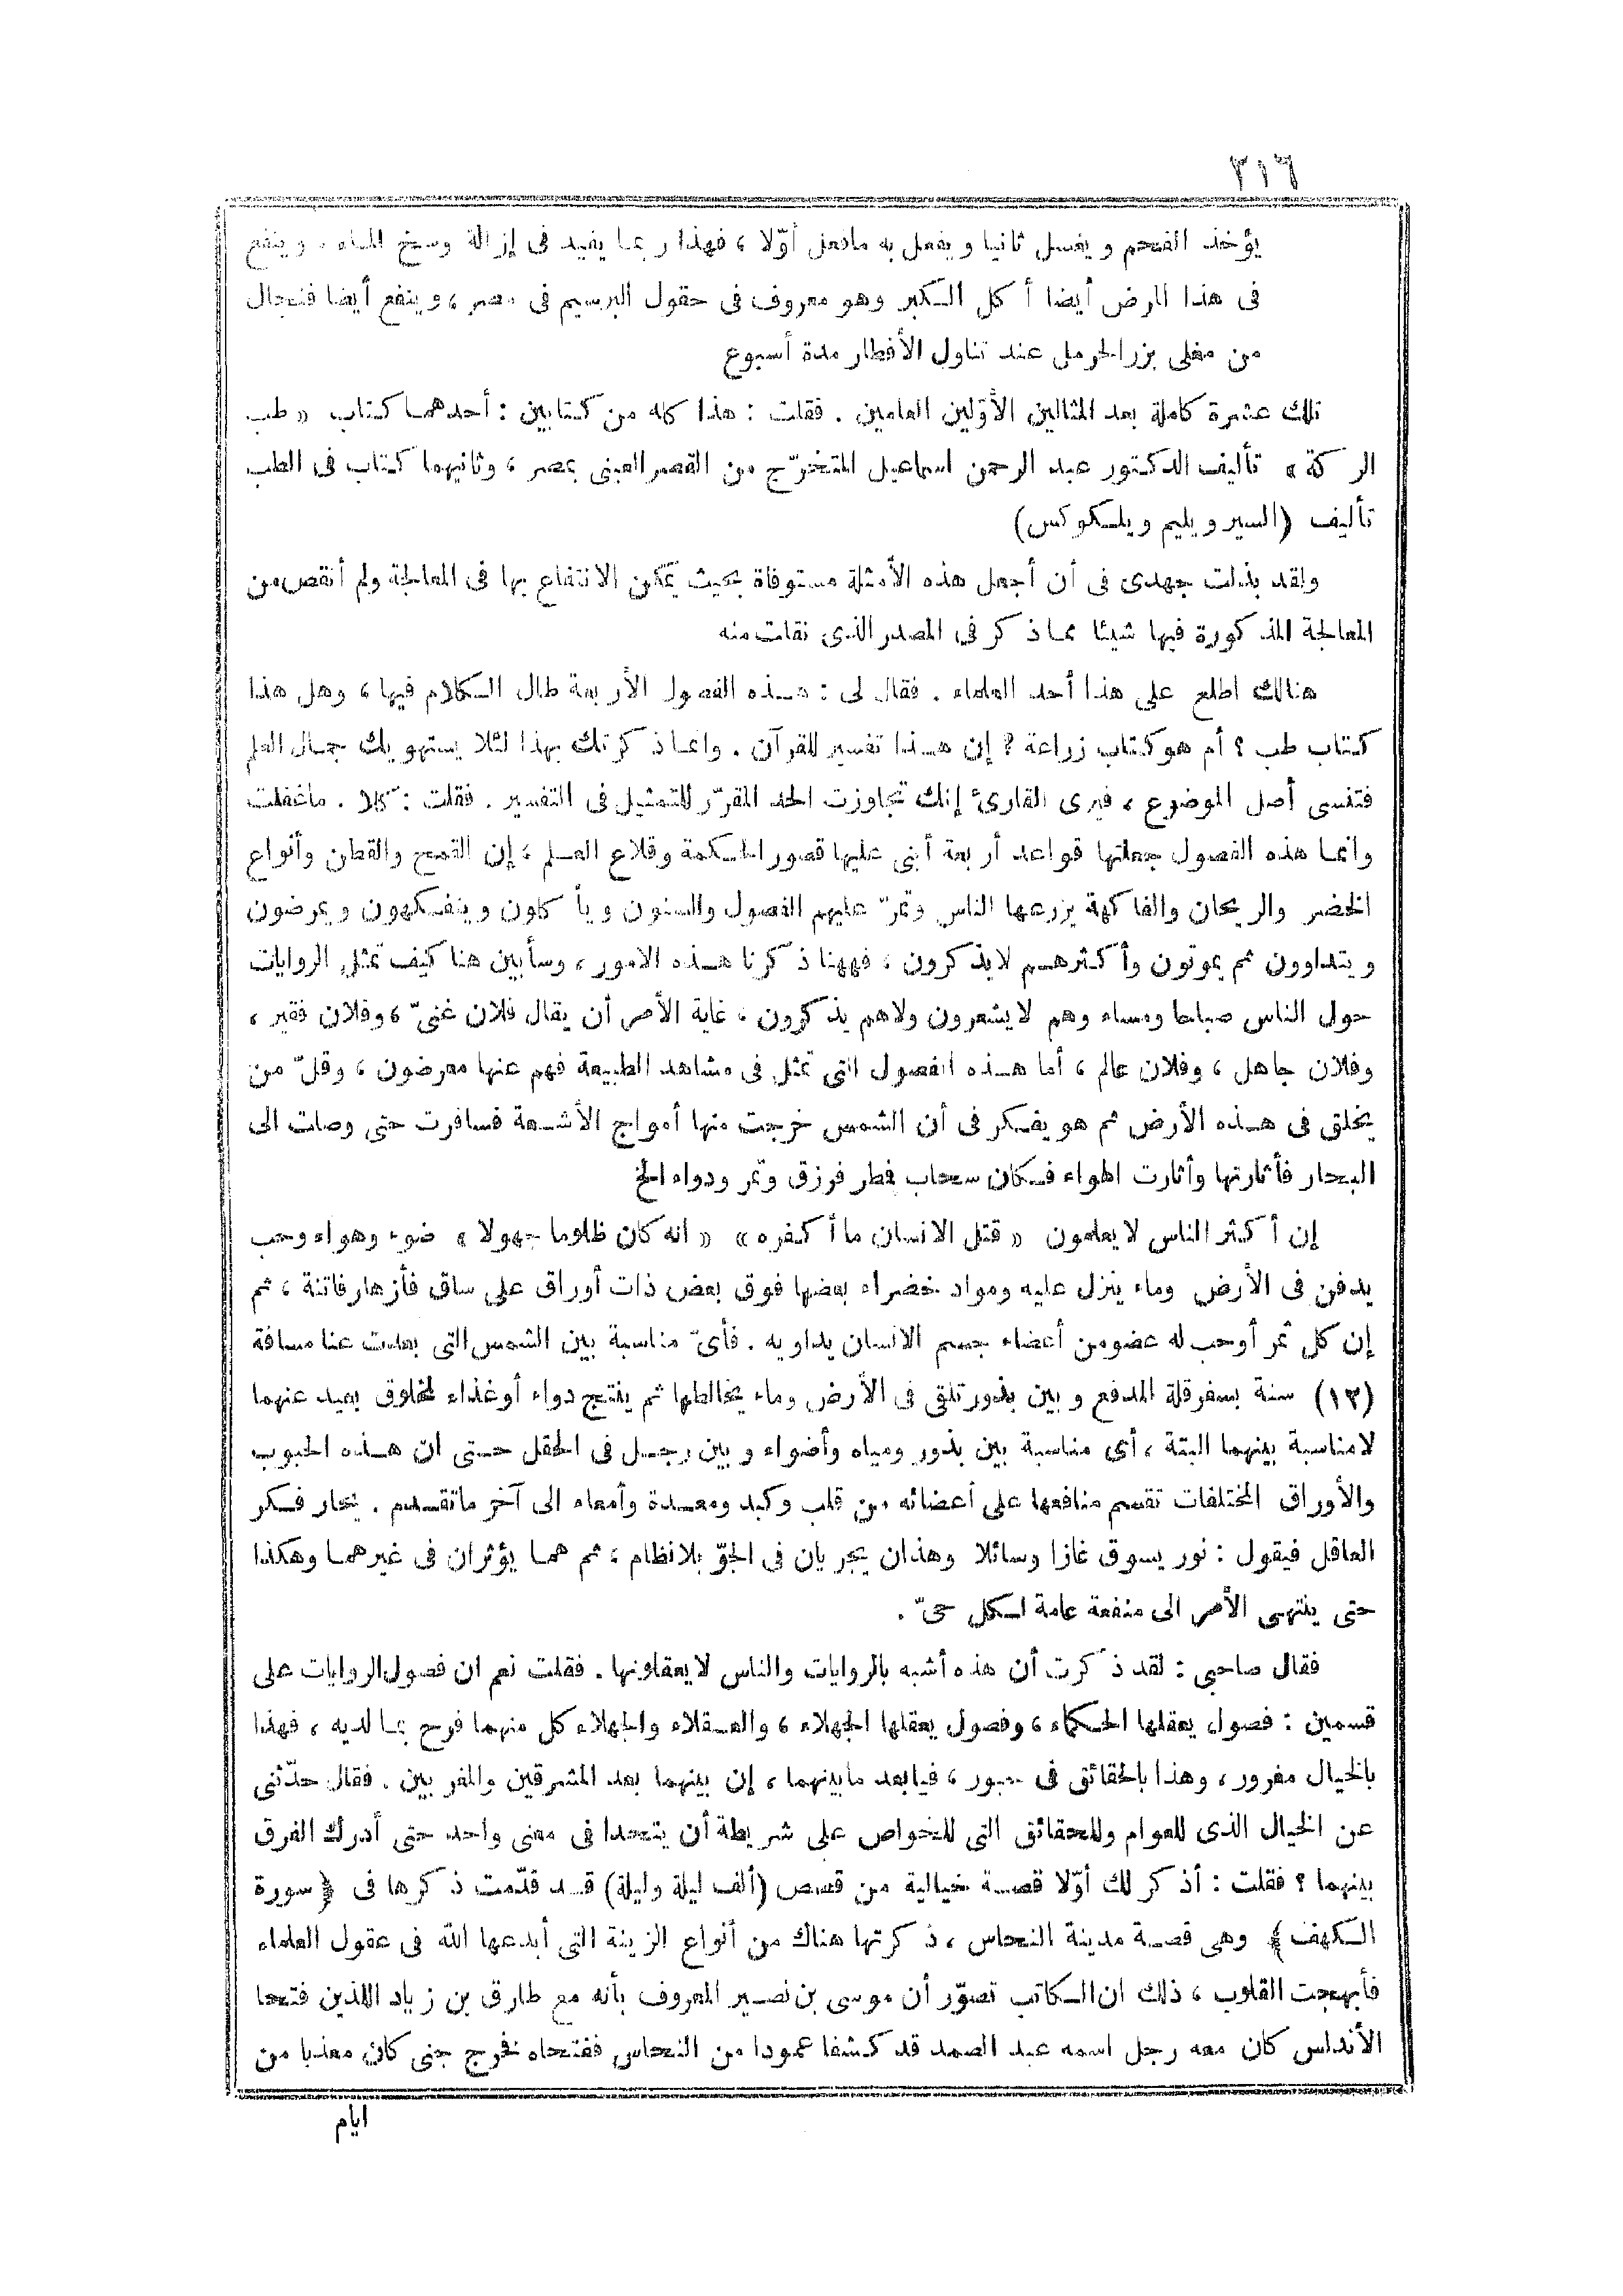 ٣١٦
يؤخذ الفحم ويغسل ثانيا ويفعل به مافعل أوّلا ، فهذا ربما يفيد فى إزالة وسخ الماء . وينفع
فى هذا المرض أيضا أكل الكبر وهو معروف فى حقول البرسيم فى مصر ، وينفع أيضا فنجال
من مغلى بزر الحرمل عند تناول الأفطار مدة أسبوع
تلك عشرة كاملة بعد المثالين الأوّلين العامين . فقلت : هذا كله من كتابين : أحدهما كتاب « طب
الركة » تأليف الدكتور عبد الرحمن اسماعيل المتخرّج من القصر العينى بمصر ، وثانيهما كتاب فى الطب
تأليف (السير ويليم ويلكوكس)
ولقد بذلت جهدى فى أن أجعل هذه الأمثلة مستوفاة بحيث يمكن الانتفاع بها فى المعالجة ولم أنقص من
المعالجة المذكورة فيها شيئا مما ذكر فى المصدر الذى نقلت منه
هنالك اطلع على هذا أحد العلماء . فقال لى : هذه الفصول الأربعة طال الكلام فيها ، وهل هذا
كتاب طب ؟ أم هو كتاب زراعة ؟ إن هذا تفسير للقرآن . وانما ذكرتك بهذا لئلا يستهويك جمال العلم
فتنسى أصل الموضوع ، فيرى القارئ إنك تجاوزت الحد المقرّر للتمثيل فى التفسير . فقلت : كلا . ماغفلت
وانما هذه الفصول جعلتها قواعد أربعة أبنى عليها قصور الحكمة وقلاع العلم ، إن القمح والقطن وأنواع
الخضر والريحان والفاكهة يزرعها الناس وتمرّ عليهم الفصول والسنون ويأكلون ويتفكهون ويمرضون
ويتداوون ثم يموتون وأكثرهم لايذكرون ، فههنا ذكرنا هذه الامور ، وسأبين هنا كيف تمثل الروايات
حول الناس صباحا ومساء وهم لايشعرون ولاهم يذكرون ، غاية الأمر أن يقال فلان غنىّ ، وفلان فقير ،
وفلان جاهل ، وفلان عالم ، أما هذه الفصول التى تمثل فى مشاهد الطبيعة فهم عنها معرضون ، وقلّ من
يخلق فى هذه الأرض ثم هو يفكر فى أن الشمس خرجت منها أمواج الأشعة فسافرت حتى وصلت الى
البحار فأثارتها وأثارت الهواء فكان سحاب فمطر فرزق وثمر ودواء الخ
إن أكثر الناس لايعلمون « قتل الانسان ما أكفره » « انه كان ظلوما جهولا » ضوء وهواء وحب
يدفن فى الأرض وماء ينزل عليه ومواد خضراء بعضها فوق بعض ذات أوراق على ساق فأزهار فاتنة ، ثم
إن كل ثمر أوحب له عضو من أعضاء جسم الانسان يداويه . فأىّ مناسبة بين الشمس التى بعدت عنا مسافة
(١٣) سنة بسفر قلة المدفع وبين بذور تلقى فى الأرض وماء يخالطها ثم ينتج دواء أوغذاء لمخلوق بعيد عنهما
لامناسبة بينهما البتة ، أى مناسبة بين بذور ومياه وأضواء وبين رجل فى الحقل حتى ان هذه الحبوب
والأوراق المختلفات تقسم منافعها على أعضائه من قلب وكبد ومعدة وأمعاء الى آخر ماتقدم . يحار فكر
العاقل فيقول : نور يسوق غازا وسائلا وهذان يجريان فى الجوّ بلانظام ، ثم هما يؤثران فى غيرهما وهكذا
حتى ينتهى الأمر الى منفعة عامة لكل حىّ .
فقال صاحبى : لقد ذكرت أن هذه أشبه بالروايات والناس لايعقلونها . فقلت نعم ان فصول الروايات على
قسمين : فصول يعقلها الحكماء ، وفصول يعقلها الجهلاء ، والعقلاء والجهلاء كل منهما فرح بما لديه ، فهذا
بالخيال مغرور ، وهذا بالحقائق فى حبور ، فيابعد مابينهما ، إن بينهما بعد المشرقين والمغربين . فقال حدّثنى
عن الخيال الذى للعوام وللحقائق التى للخواص على شريطة أن يتحدا فى معنى واحد حتى أدرك الفرق
بينهما ؟ فقلت : أذكر لك أوّلا قصة خيالية من قصص (ألف ليلة وليلة) قد قدّمت ذكرها فى ﴿ سورة
الكهف ﴾ وهى قصة مدينة النحاس ، ذكرتها هناك من أنواع الزينة التى أبدعها الله فى عقول العلماء
فأبهجت القلوب ، ذلك ان الكاتب تصوّر أن موسى بن نصير المعروف بأنه مع طارق بن زياد اللذين فتحا
الأندلس كان معه رجل اسمه عبد الصمد قد كشفا عمودا من النحاس ففتحاه فخرج جنى كان معذبا من
ايام